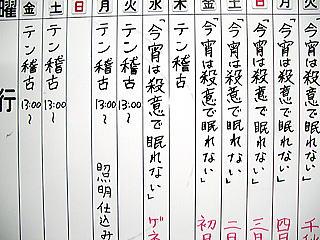 曜 金 土 日 月 火 水 木 金 土 日 月
行
テン稽古 13:00～
テン稽古 13:00～
テン稽古 13:00～ 照明仕込み
テン稽古 13:00～
「今宵は殺意で眠れない」 ゲネ
テン稽古
「今宵は殺意で眠れない」 初日
「今宵は殺意で眠れない」 二
「今宵は殺意で眠れない」 三日
「今宵は殺意で眠れない」 四日
「今宵は殺意で眠れない」 千